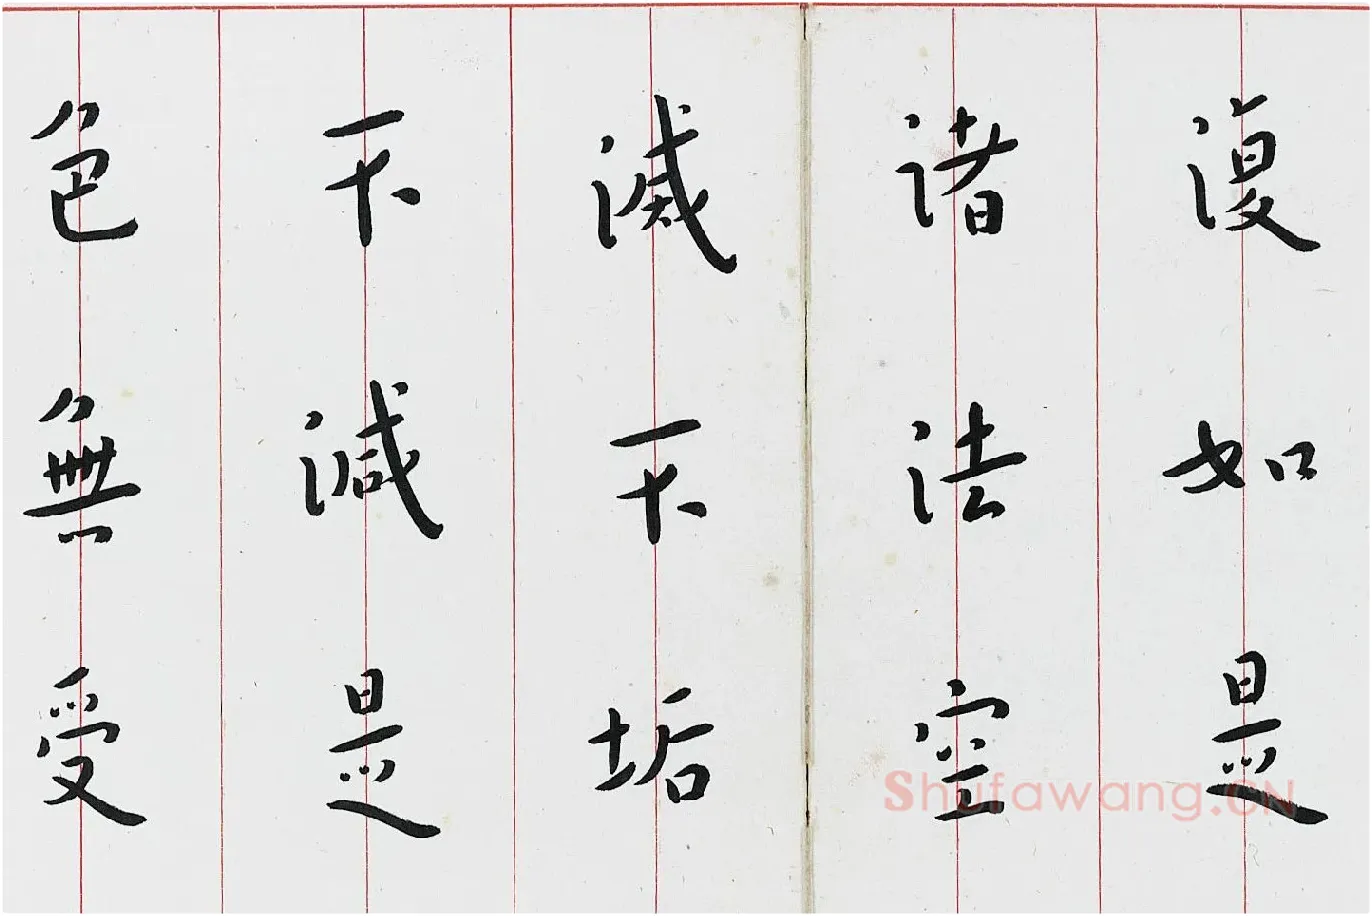 復如是
諸法空
滅不垢
不減是
色無受
Shufawang.CN